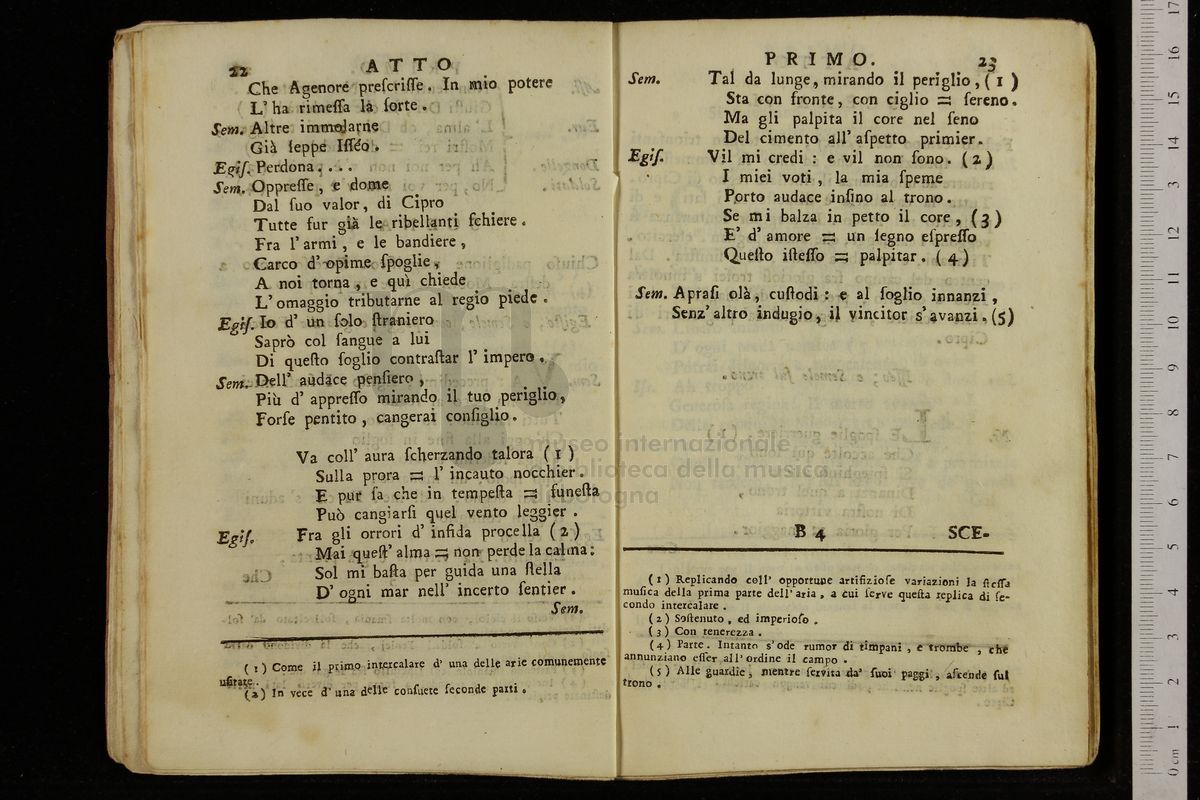 22 ATTO
Che Agenore preſcriſſe. In mio potere
L' ha rimeſſa la ſorte.
Sem. Altre immolarne
Già ſeppe Iſſéo.
Egiſ. Perdona....
Sem. Oppreſſe, e dome
Dal ſuo valor, di Cipro
Tutte fur già le ribellanti ſchiere.
Fra l' armi, e le bandiere,
Carco d' opime ſpoglie,
A noi torna, e quì chiede
L' omaggio tributarne al regio piede.
Egiſ. Io d' un ſolo ſtraniero
Saprò col ſangue a lui
Di queſto ſoglio contraſtar l' impero.
Sem. Dell' audace penſiero,
Più d' appreſſo mirando il tuo periglio,
Forſe pentito, cangerai conſiglio.
Va coll' aura ſcherzando talora (1)
Sulla prora = l' incauto nocchier.
E pur ſa che in tempeſta = funeſta
Può cangiarſi quel vento leggier.
Egiſ. Fra gli orrori d' infida procella (2)
Mai queſt' alma = non perde la calma:
Sol mi baſta per guida una ſtella
D' ogni mar nell' incerto ſentier.
Sem.
(1) Come il primo intercalare d' una delle arie comunemente
uſitate.
(2) In vece d' una delle conſuete ſeconde parti.
PRIMO. 23
Sem. Tal da lunge, mirando il periglio, (1)
Sta con fronte, con ciglio = ſereno.
Ma gli palpita il core nel ſeno
Del cimento all' aſpetto primier.
Egiſ. Vil mi credi: e vil non ſono. (2)
I miei voti, la mia ſpeme
Porto audace inſino al trono.
Se mi balza in petto il core, (3)
E' d' amore = un ſegno eſpreſſo
Queſto iſteſſo = palpitar. (4)
Sem. Apraſi olà, cuſtodi: e al ſoglio innanzi,
Senz' altro indugio, il vincitor s' avanzi. (5)
B 4 SCE-
(1) Replicando coll' opportune artifizioſe variazioni la ſteſſa
muſica della prima parte dell' aria, a cui ſerve queſta replica di ſe-
condo intercalare.
(2) Soſtenuto, ed imperioſo.
(3) Con tenerezza.
(4) Parte. Intanto s' ode rumor di timpani, e trombe, che
annunziano eſſer all' ordine il campo.
(5) Alle guardie, mentre ſervita da' ſuoi paggi, aſcende ſul
trono.
museo internazionale
biblioteca della musica
di bologna
17
16
15
14
13
12
11
10
9
8
7
6
5
4
3
2
1
0 cm